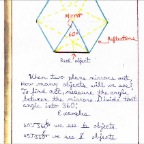 Mirror
60°
Reflections
Real object
When two plane mirrors are
how many objects will we see?
To find out, measure the angle
between the mirrors. Divide that
angle into 360.
Examples
60° 360° we see 6 objects.
we see objects